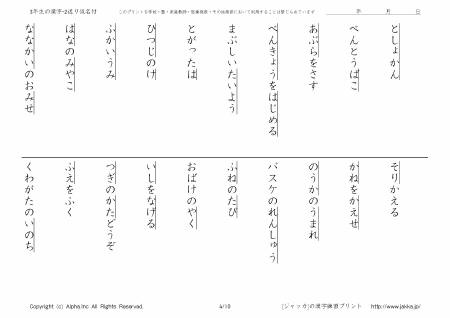 3年生の漢字-2送り仮名付
このプリントを学校・塾・家庭教師・医療機関・その他施設において利用することは禁じられています
年　月　日
としょかん
べんとうばこ
あぶらをさす
べんきょうをはじめる
まぶしいたいよう
とがったは
ひつじのけ
ふかいうみ
はなのみやこ
ななかいのおみせ
そりかえる
かねをかえせ
のうかのうまれ
バスケのれんしゅう
ふねのたび
おばけのやく
いしをなげる
つぎのかたどうぞ
ふえをふく
くわがたのいのち
Copyright (c) Alpha.Inc All Rights Reserved.
4/10
[ジャッカ]の漢字練習プリント
http://www.jakka.jp/